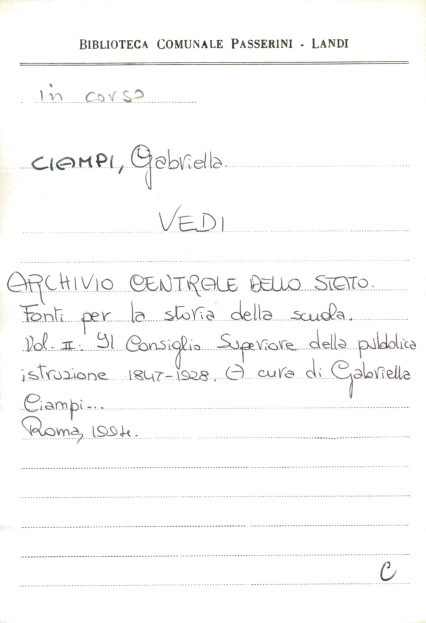 BIBLIOTECA COMUNALE PASSERINI - LANDI
In corso
CIAMPI, Gabriella.
VEDI
ARCHIVIO CENTRALE DELLO STATO.
Fonti per la storia della scuola.
Vol. II: Il Consiglio Superiore della pubblica
istruzione 1847-1928. A cura di Gabriella
Ciampi...
Roma, 1994.
C